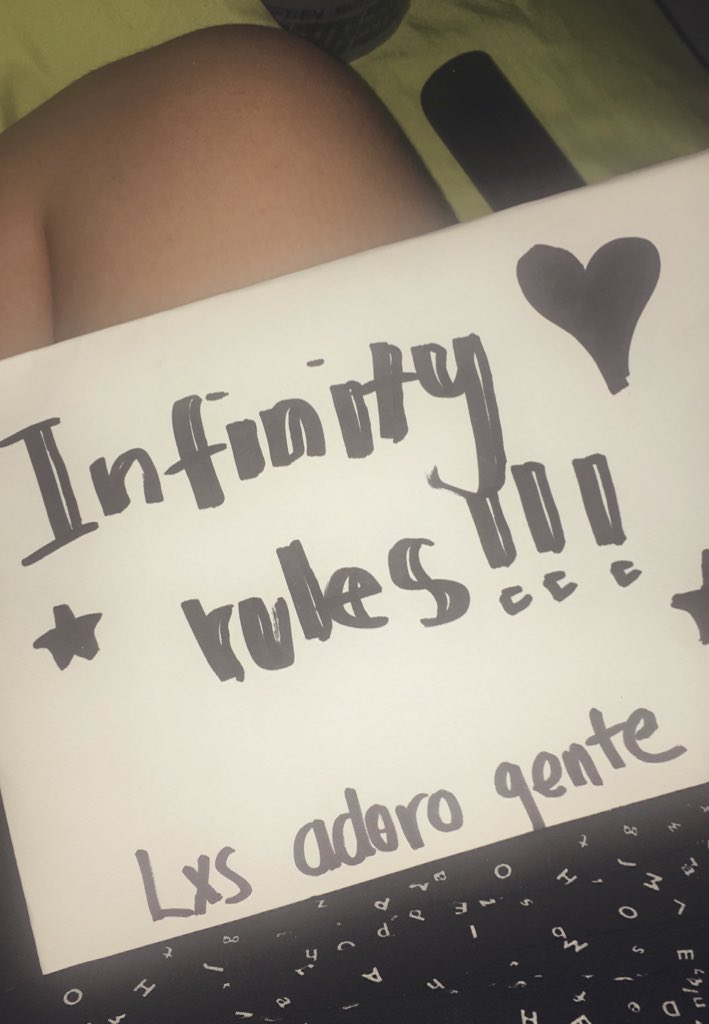 Infinity
rules!!!
Lxs adoro gente